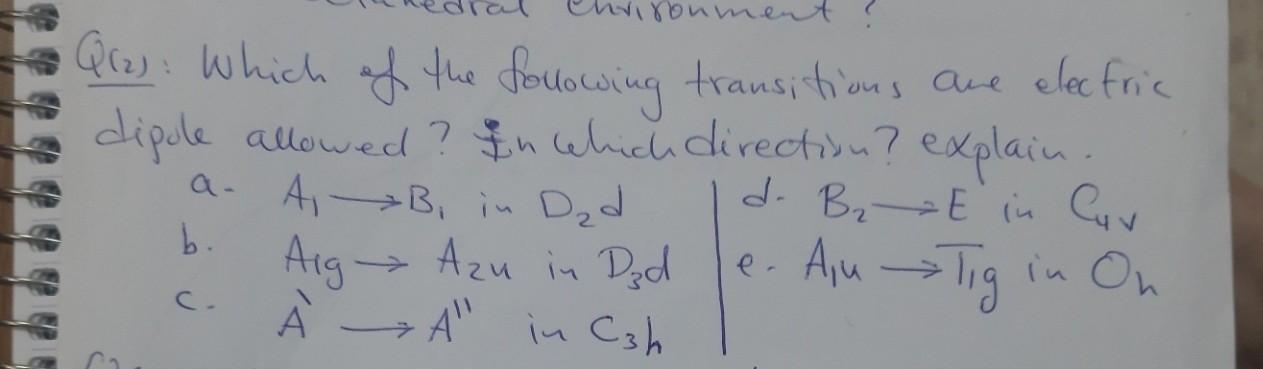 octahedral environment?
Q(2): Which of the following transitions are electric
dipole allowed? In which direction? explain.
a- A₁ → B₁ in D₂d
b. A₁g → A₂u in D₃d
c. A' → A'' in C₃h
d- B₂ → E in C₄v
e- A₁u → T₁g in Oh